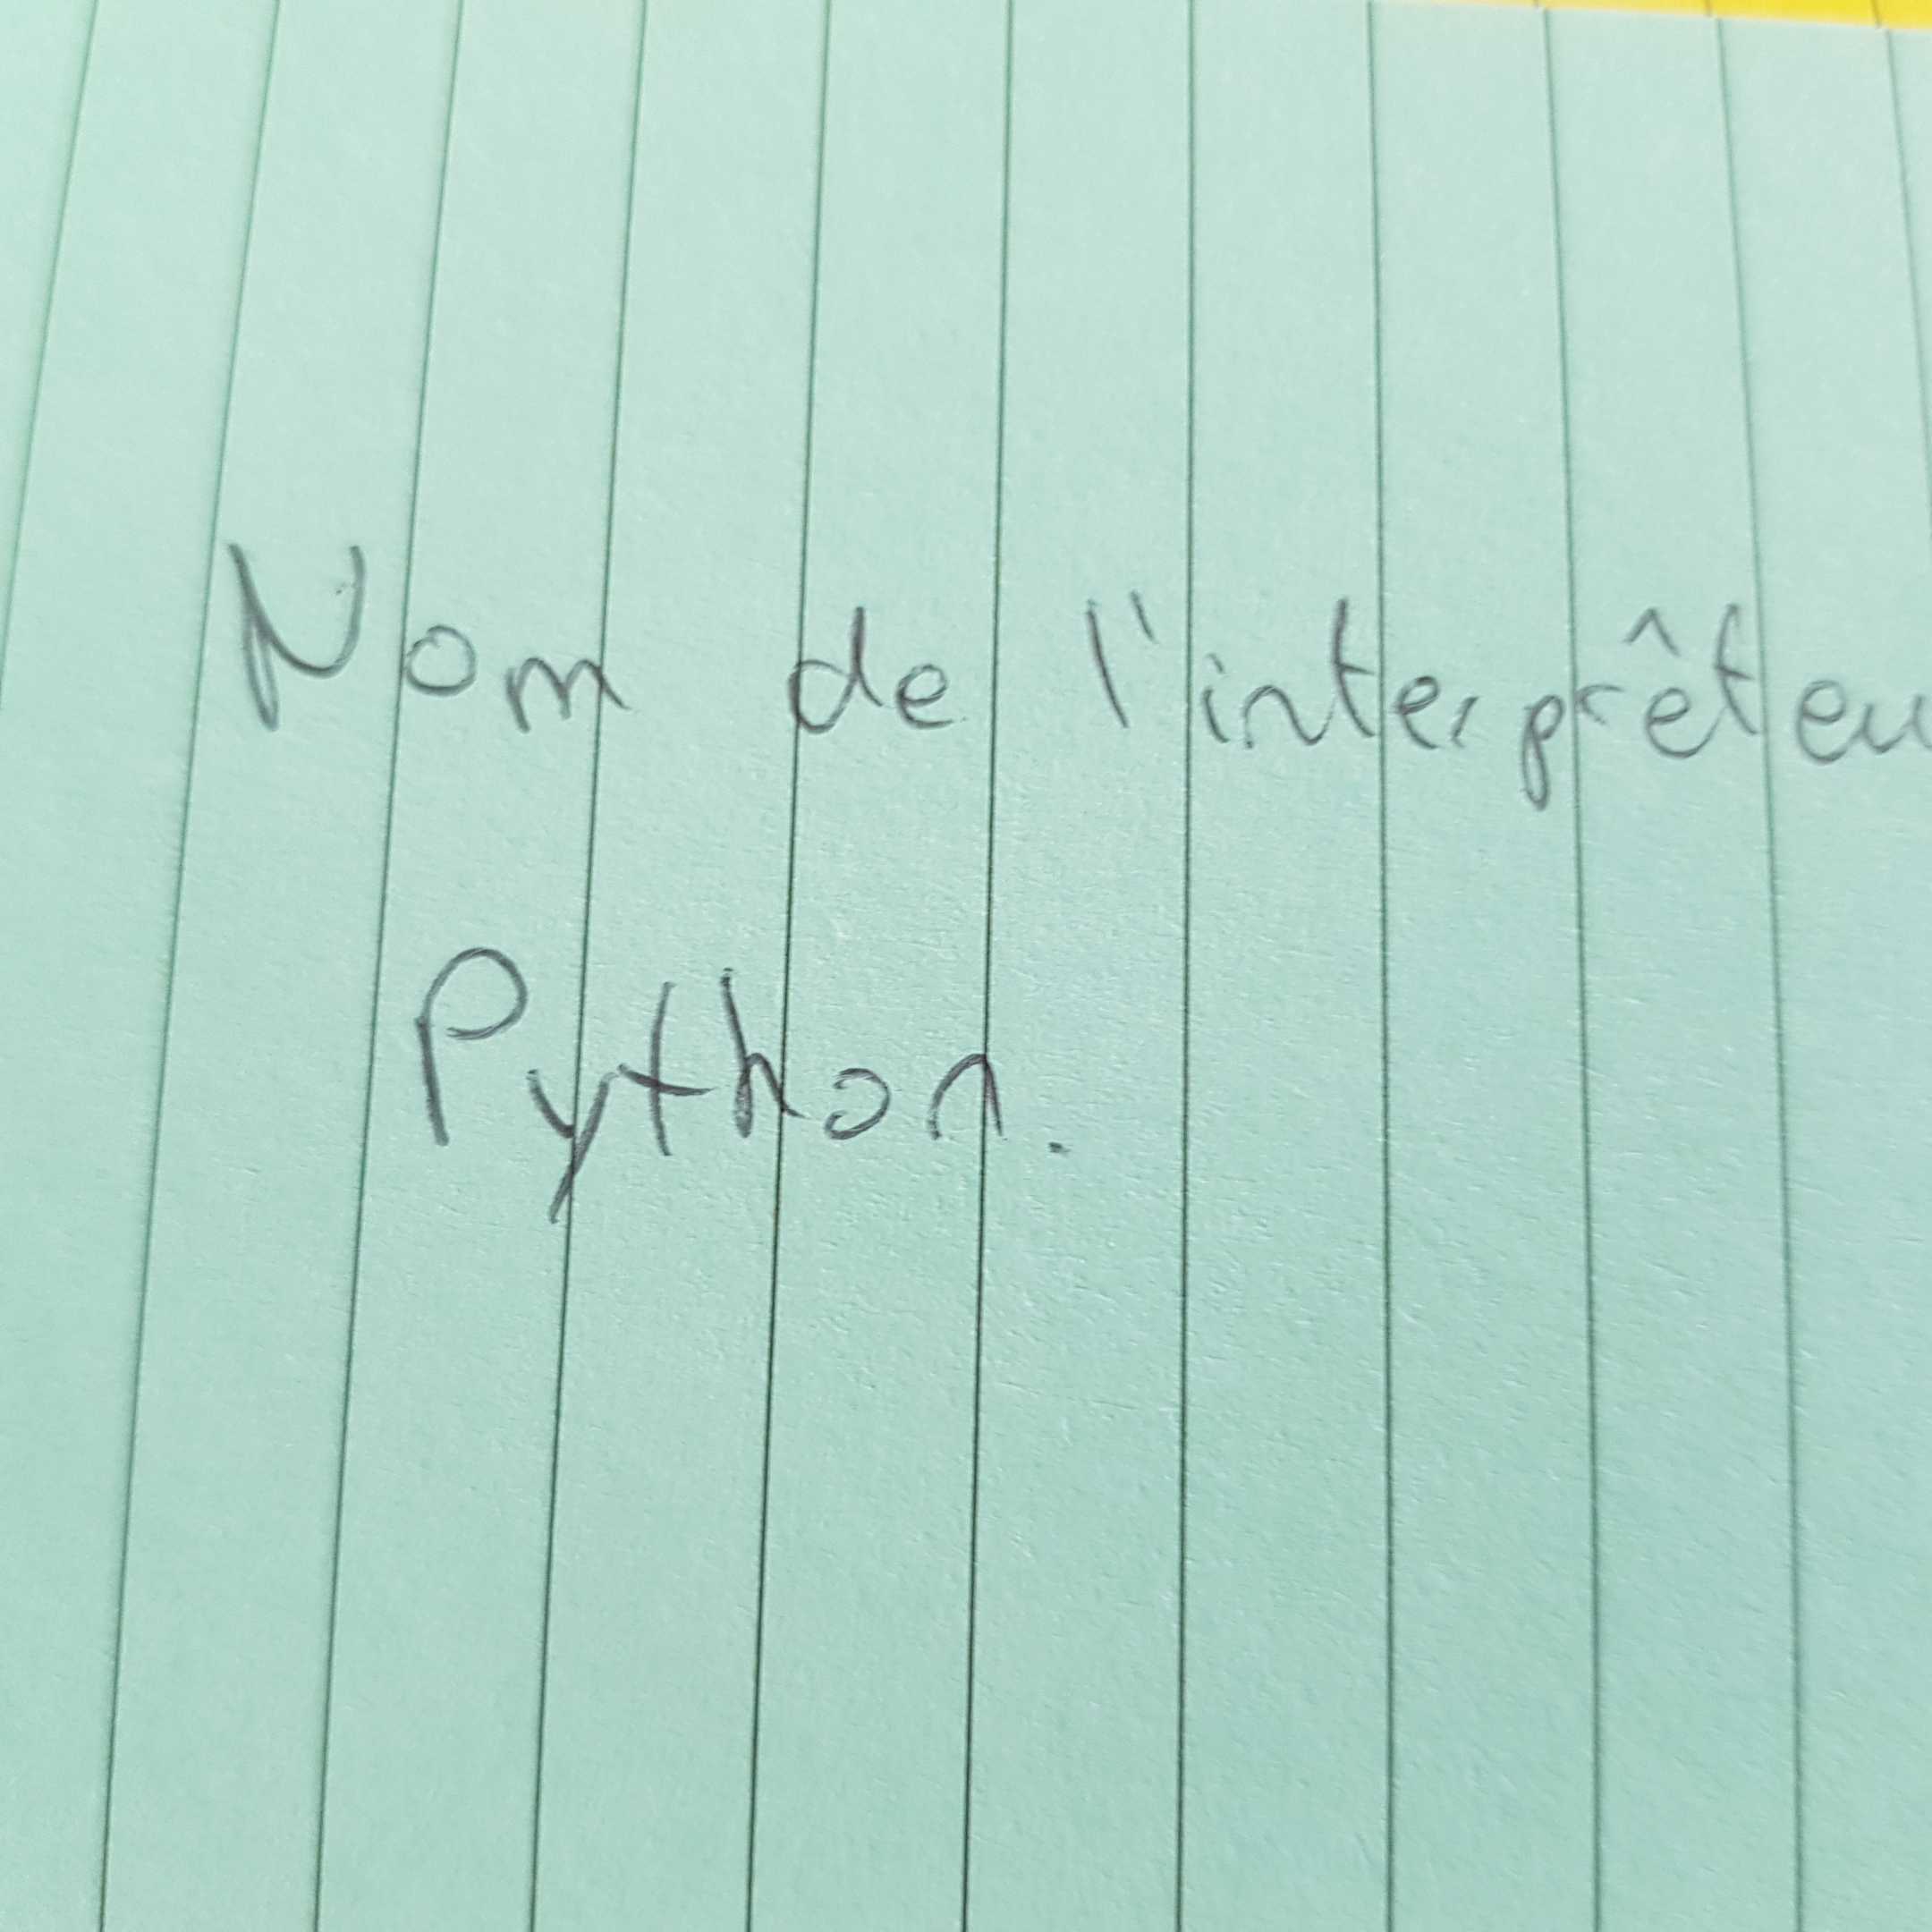 Nom de l'interprêteu
Python.